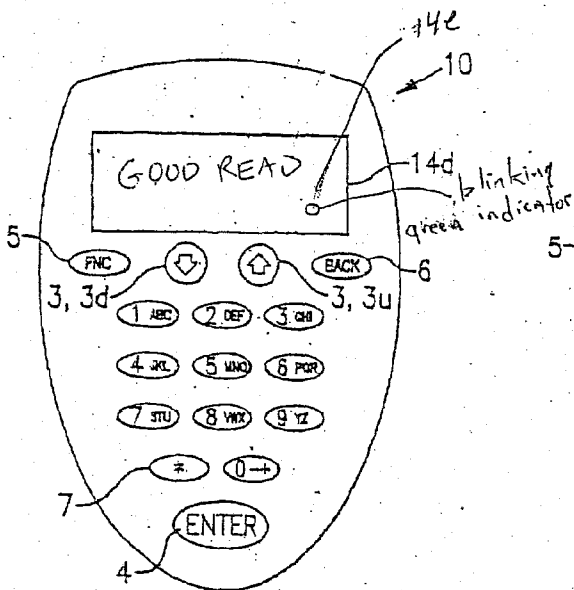 14e
10
GOOD READ
14d
blinking
green indicator
5
5
FNC
BACK
6
3, 3d
3, 3u
1 ABC 2 DEF 3 GHI
4 JKL 5 MNO 6 PQR
7 STU 8 VWX 9 YZ
7
* 0
ENTER
4